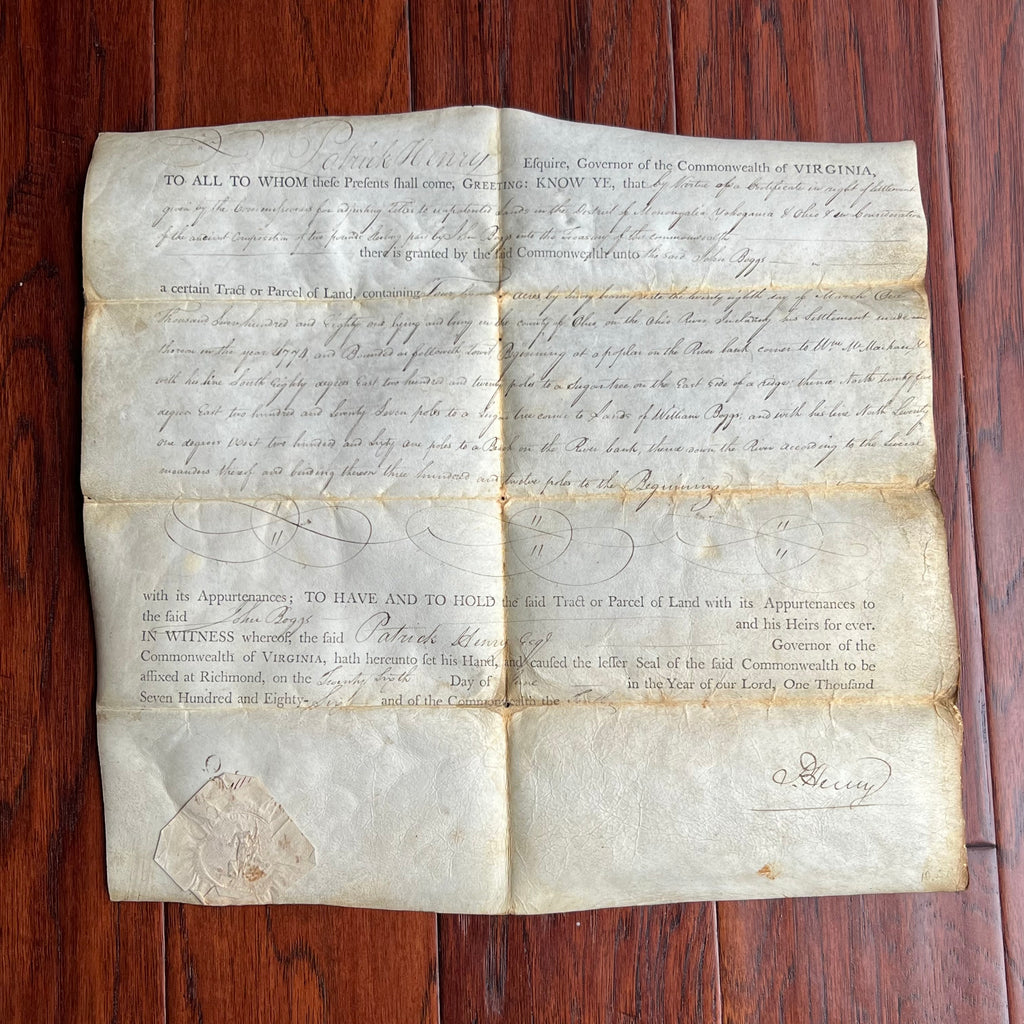 Patrick Henry Esquire, Governor of the Commonwealth of VIRGINIA,
TO ALL TO WHOM these Presents shall come, GREETING: KNOW YE, that by Virtue of a Certificate in right of Settlement
given by the Commissioners for adjusting titles to unpatented Lands in the District of Monongalia Yohogania & Ohio & in Consideration
of the ancient Composition of two pounds Sterling paid by John Boggs into the Treasury of this commonwealth
there is granted by the said Commonwealth unto the said John Boggs
a certain Tract or Parcel of Land, containing Four hundred acres by Survey bearing date the twenty eighth day of March One
Thousand Seven hundred and Eighty one lying and being in the county of Ohio, on the Ohio River, Including his Settlement made
thereon in the year 1774 and Bounded as followeth towit Beginning at a poplar on the River bank corner to Wm McMachan &
with his line South Eighty degrees East two hundred and twenty poles to a Sugar tree on the East Side of a ridge: thence North twenty five
degrees East two hundred and Seventy Seven poles to a Sugar tree corner to Lands of William Boggs, and with his line North Seventy
one degrees West two hundred and Sixty one poles to a on the River bank, thence down the River according to the Several
meanders thereof and binding thereon three hundred and twelve poles to the Beginning
with its Appurtenances; TO HAVE AND TO HOLD the said Tract or Parcel of Land with its Appurtenances to
the said John Boggs and his Heirs for ever.
IN WITNESS whereof, the said Patrick Henry Esqr Governor of the
Commonwealth of VIRGINIA, hath hereunto set his Hand, and caused the lesser Seal of the said Commonwealth to be
affixed at Richmond, on the Twenty Sixth Day of June in the Year of our Lord, One Thousand
Seven Hundred and Eighty-Six and of the Commonwealth the
P. Henry